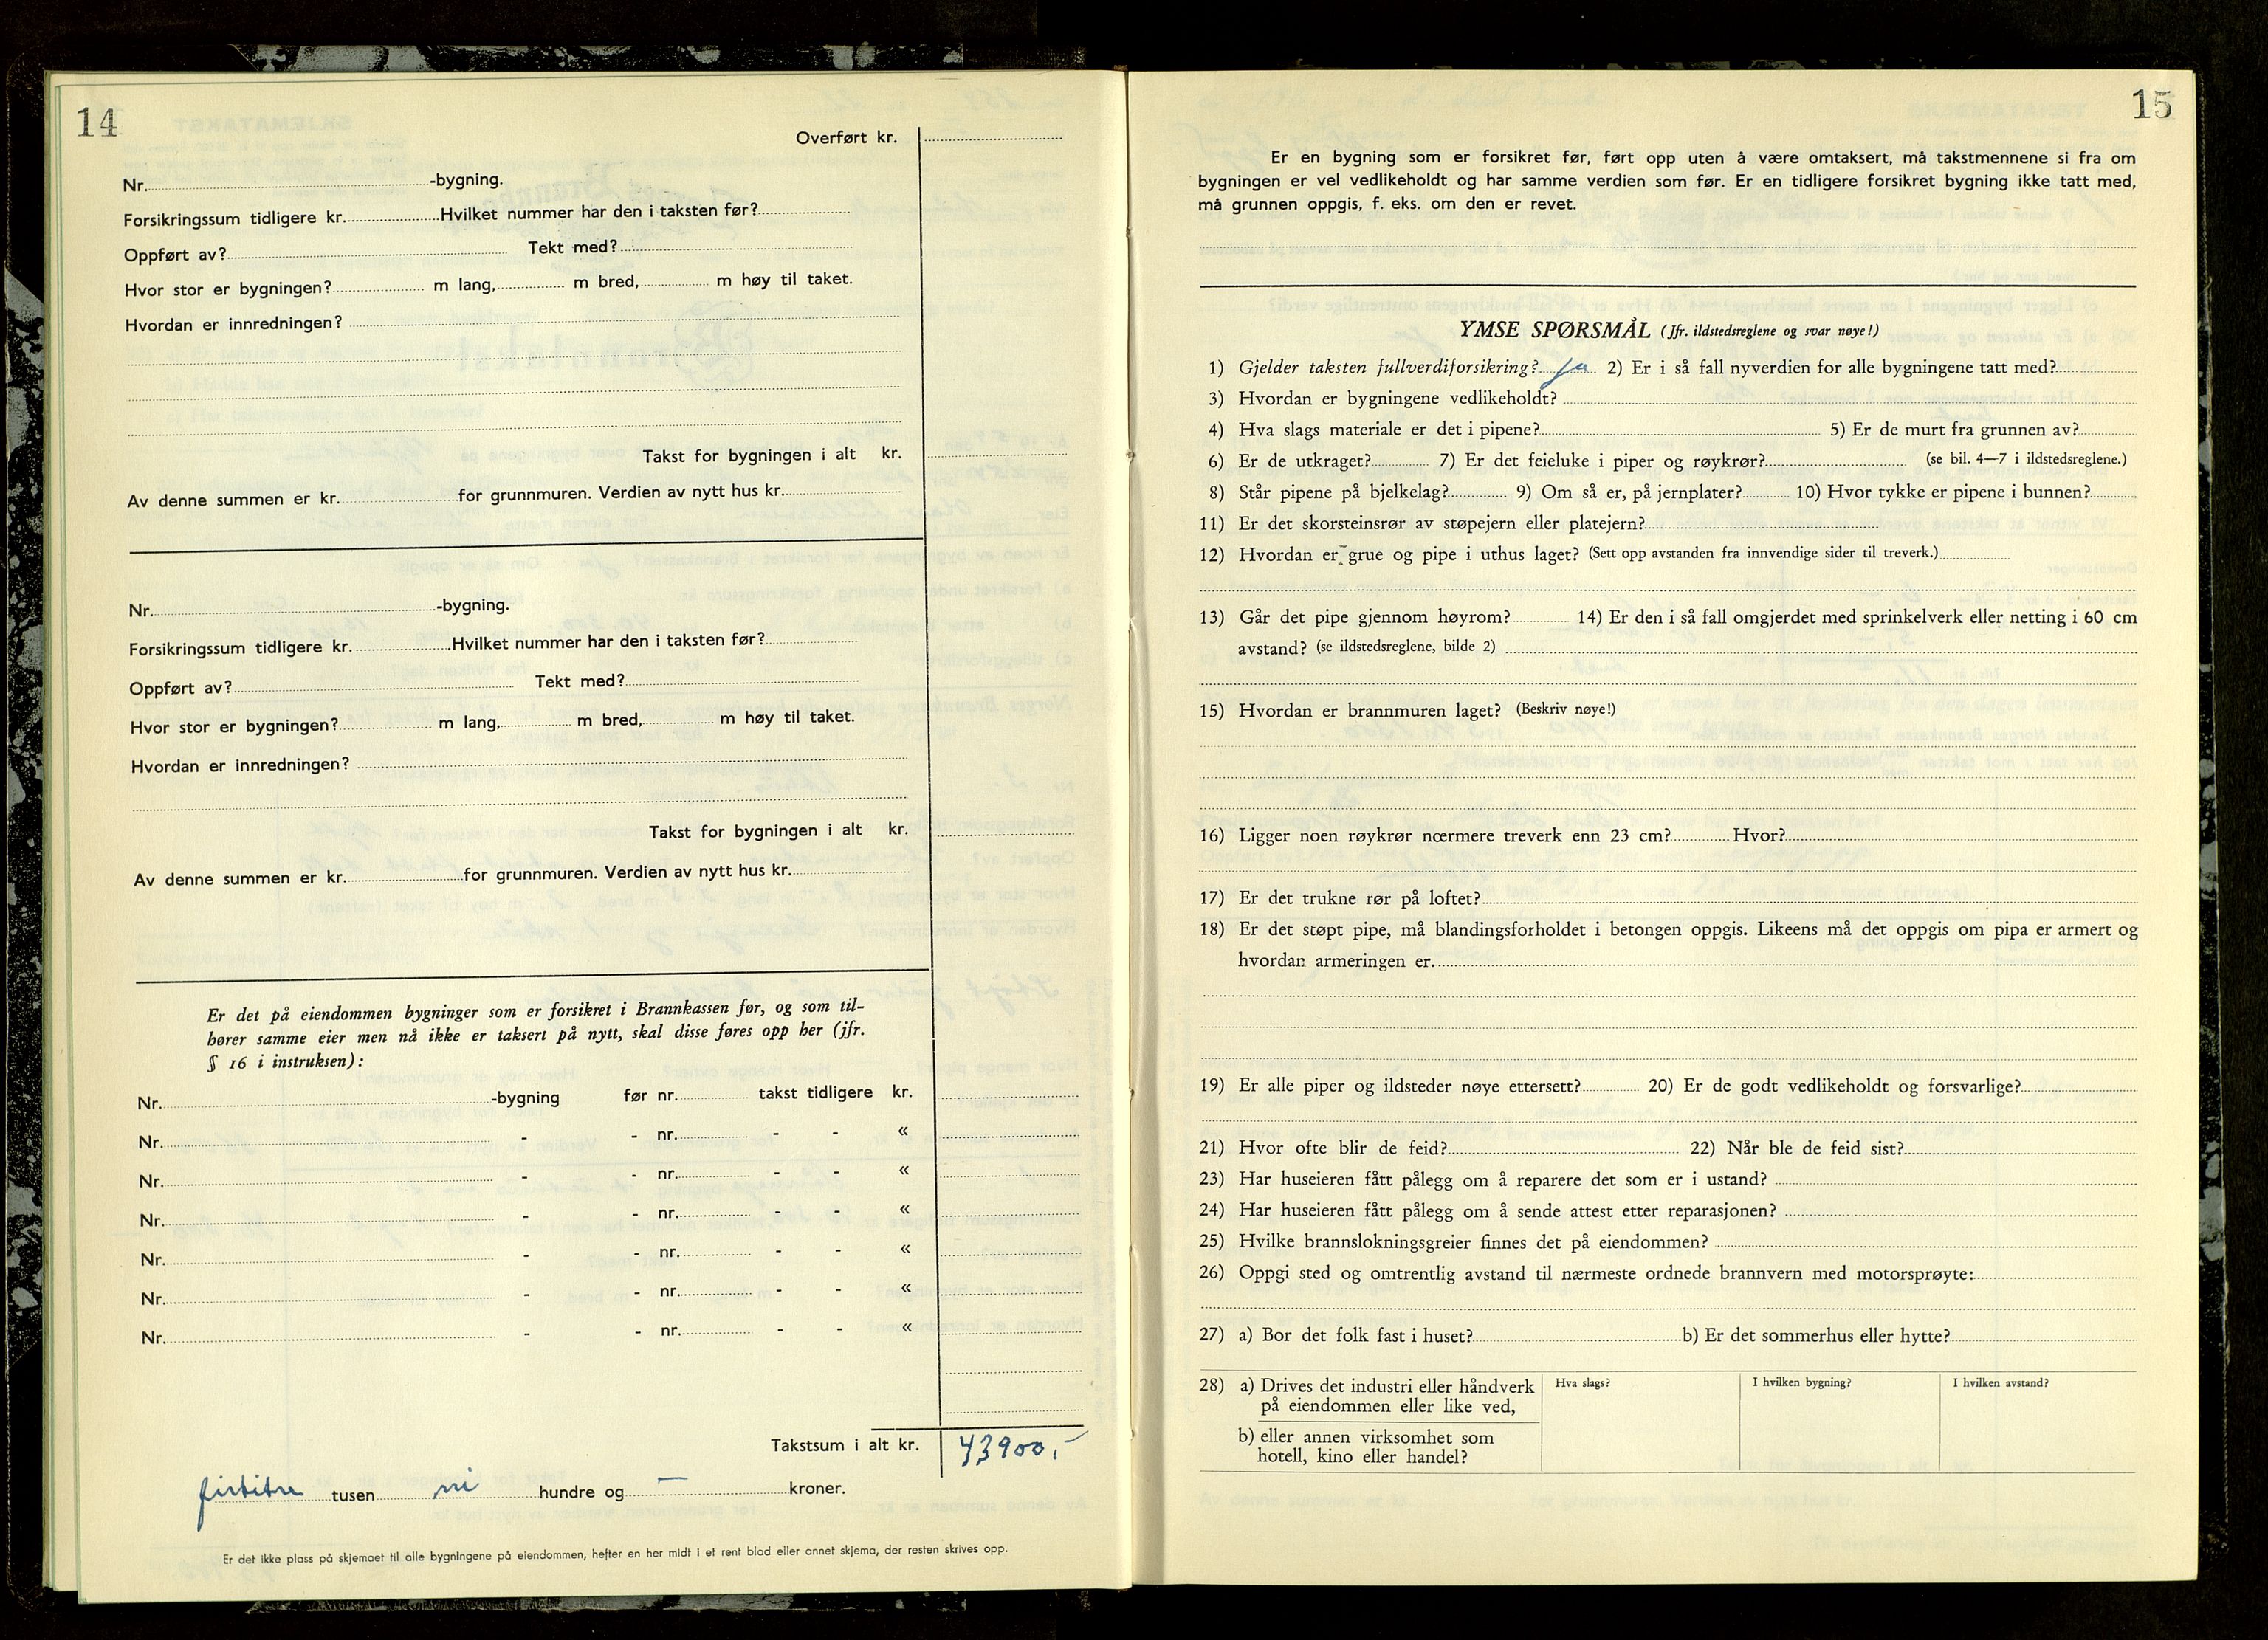 14
Overført kr.
Nr. -bygning.
Forsikringssum tidligere kr. Hvilket nummer har den i taksten før?
Oppført av? Tekt med?
Hvor stor er bygningen? m lang, m bred, m høy til taket.
Hvordan er innredningen?
Takst for bygningen i alt kr.
Av denne summen er kr. for grunnmuren. Verdien av nytt hus kr.
Nr. -bygning.
Forsikringssum tidligere kr. Hvilket nummer har den i taksten før?
Oppført av? Tekt med?
Hvor stor er bygningen? m lang, m bred, m høy til taket.
Hvordan er innredningen?
Takst for bygningen i alt kr.
Av denne summen er kr. for grunnmuren. Verdien av nytt hus kr.
Er det på eiendommen bygninger som er forsikret i Brannkassen før, og som til-
hører samme eier men nå ikke er taksert på nytt, skal disse føres opp her (jfr.
§ 16 i instruksen):
Nr. -bygning før nr. takst tidligere kr.
Nr. - - nr. - - «
Nr. - - nr. - - «
Nr. - - nr. - - «
Nr. - - nr. - - «
Nr. - - nr. - - «
Nr. - - nr. - - «
Takstsum i alt kr. 43900,-
førtitre tusen ni hundre og — kroner.
Er det ikke plass på skjemaet til alle bygningene på eiendommen, hefter en her midt i et rent blad eller annet skjema, der resten skrives opp.
15
Er en bygning som er forsikret før, ført opp uten å være omtaksert, må takstmennene si fra om
bygningen er vel vedlikeholdt og har samme verdien som før. Er en tidligere forsikret bygning ikke tatt med,
må grunnen oppgis, f. eks. om den er revet.
YMSE SPØRSMÅL (Jfr. ildstedsreglene og svar nøye!)
1) Gjelder taksten fullverdiforsikring? ja 2) Er i så fall nyverdien for alle bygningene tatt med?
3) Hvordan er bygningene vedlikeholdt?
4) Hva slags materiale er det i pipene? 5) Er de murt fra grunnen av?
6) Er de utkraget? 7) Er det feieluke i piper og røykrør? (se bil. 4—7 i ildstedsreglene.)
8) Står pipene på bjelkelag? 9) Om så er, på jernplater? 10) Hvor tykke er pipene i bunnen?
11) Er det skorsteinsrør av støpejern eller platejern?
12) Hvordan er grue og pipe i uthus laget? (Sett opp avstanden fra innvendige sider til treverk.)
13) Går det pipe gjennom høyrom? 14) Er den i så fall omgjerdet med sprinkelverk eller netting i 60 cm
avstand? (se ildstedsreglene, bilde 2)
15) Hvordan er brannmuren laget? (Beskriv nøye!)
16) Ligger noen røykrør nærmere treverk enn 23 cm? Hvor?
17) Er det trukne rør på loftet?
18) Er det støpt pipe, må blandingsforholdet i betongen oppgis. Likeens må det oppgis om pipa er armert og
hvordan armeringen er.
19) Er alle piper og ildsteder nøye ettersett? 20) Er de godt vedlikeholdt og forsvarlige?
21) Hvor ofte blir de feid? 22) Når ble de feid sist?
23) Har huseieren fått pålegg om å reparere det som er i ustand?
24) Har huseieren fått pålegg om å sende attest etter reparasjonen?
25) Hvilke brannslokningsgreier finnes det på eiendommen?
26) Oppgi sted og omtrentlig avstand til nærmeste ordnede brannvern med motorsprøyte:
27) a) Bor det folk fast i huset? b) Er det sommerhus eller hytte?
28) a) Drives det industri eller håndverk Hva slags? I hvilken bygning? I hvilken avstand?
på eiendommen eller like ved,
b) eller annen virksomhet som
hotell, kino eller handel?